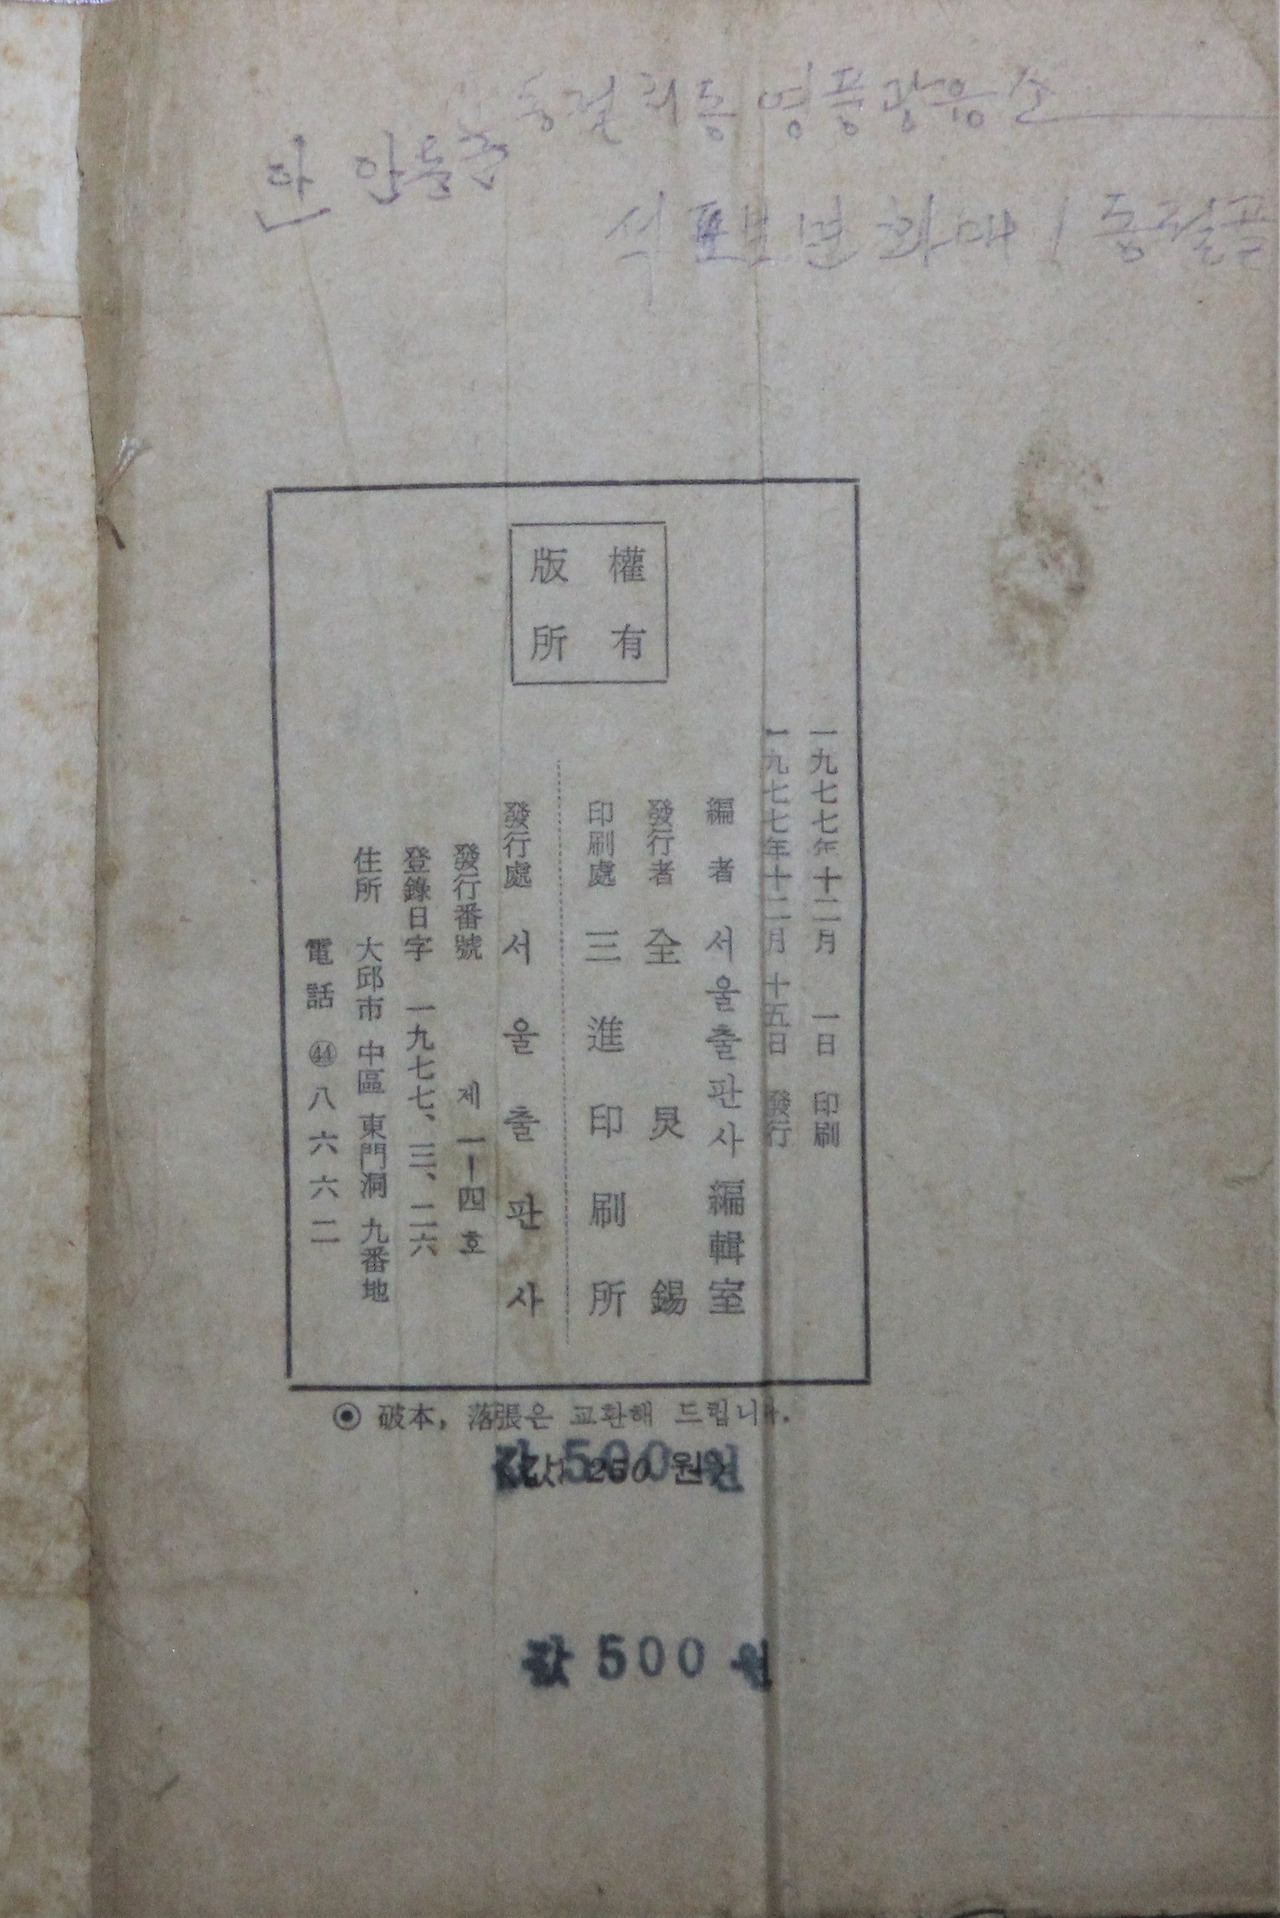 석포면 화대 1 동절골
版權
所有
一九七七年十二月 一日 印刷
一九七七年十二月 十五日 發行
編者 서울출판사 編輯室
發行者 全炅錫
印刷處 三進印刷所
發行處 서울출판사
發行番號 제 一-四 호
登錄日字 一九七七、三、二六
住所 大邱市 中區 東門洞 九番地
電話 ㊹ 八六六二
◉ 破本, 落張은 교환해 드립니다.
값 500 원
값 500 원